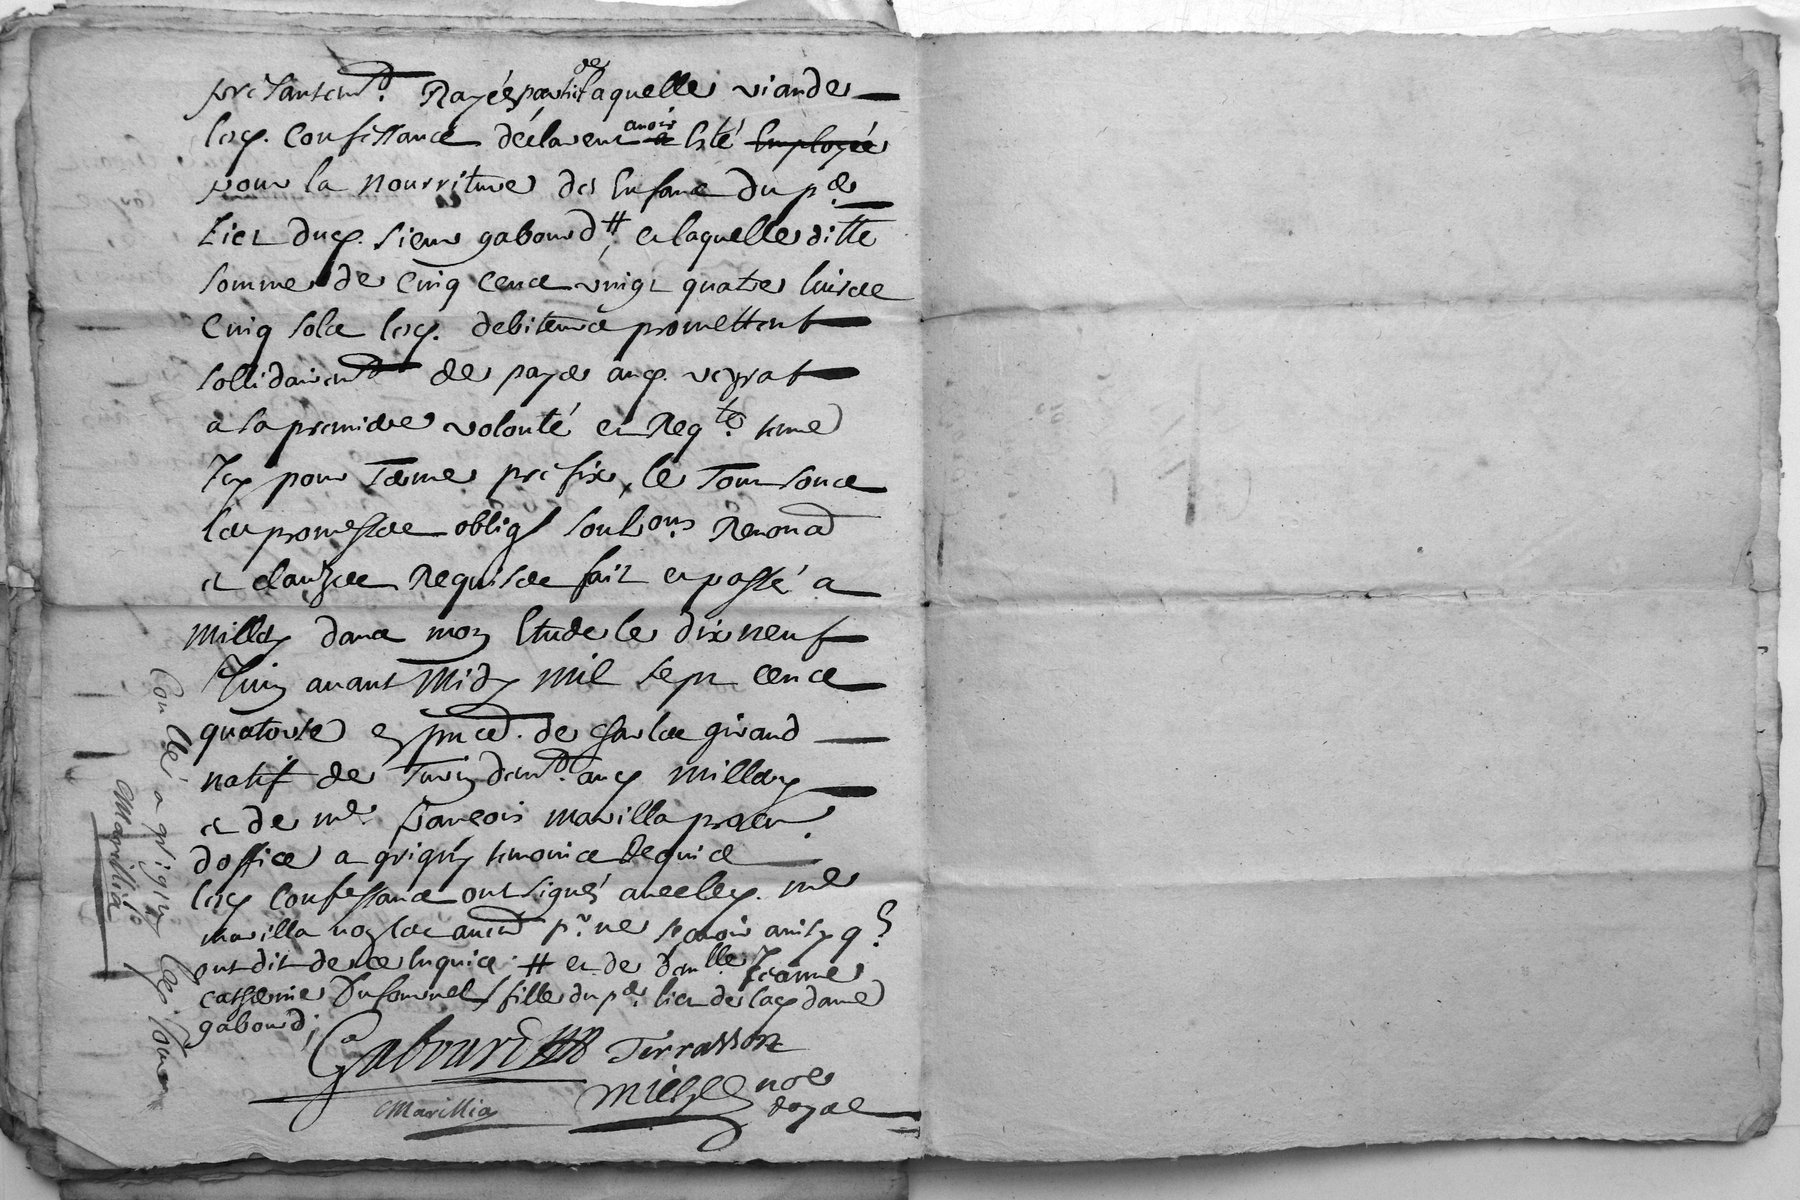 presantemt. Rayés partie de laquelle viande
lesq. confessants déclarent avoir esté Employée
pour la nourriture des Enfans du pr.
Lict dud. sieur gabourd # et laquelle ditte
somme de Cinq cents vingt quatre livres
Cinq sols lesq. debiteurs promettent
sollidairemt de payer aud. veyrat
a sa premiere volonté et Reqte. terme
Icy pour Terme prefix, le Tout sous
les promesses obligs soubons. Renond
et clauses Requises fait et passé a
Millery dans mon Etude le dix neuf
Juin avant Midy mil sept cents
quatorse en pnce. de Charles giraud
natif de Turin demt. aud. Millery
et de me françois marillia procr.
doffice a grigny temoins Requis
lesq Confessants ont signés avec led. me
marilla non les autres pr. ne scavoir ainsy q.
ont dit de ce Enquis. # et de demlle Jeanne
catherine fille du pr. lict de lad dame
gabourd;
Gabourd Terrasson
Marillia
nore
Royal
Conllé a grigny les
Marillia